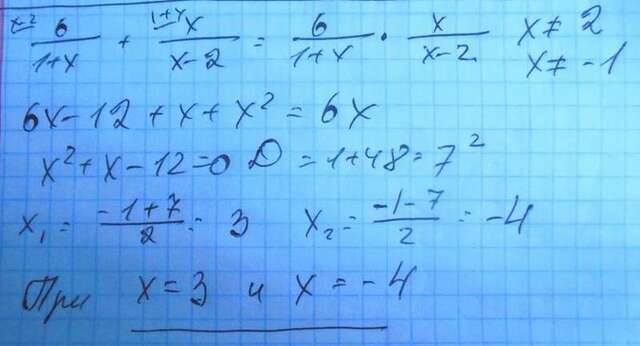 x-2 6/1+x + 1+x x/x-2 = 6/1+x · x/x-2 x≠2
x≠-1
6x-12+x+x²=6x
x²+x-12=0 D=1+48=7²
x₁=-1+7/2=3 x₂=-1-7/2=-4
При x=3 и x=-4